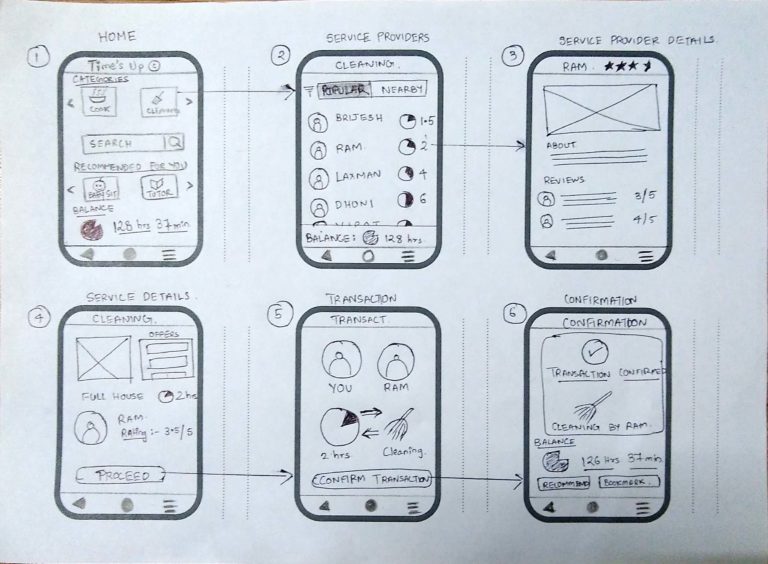 HOME
1
Time's Up
CATEGORIES
COOK
CLEANING
SEARCH
RECOMMENDED FOR YOU
BABY SIT
TUTOR
BALANCE
128 hrs 37 min
SERVICE PROVIDERS
2
CLEANING.
POPULAR NEARBY
BRIJESH 1.5
RAM. 2
LAXMAN 4
DHONI 6
BALANCE: 128 hrs
SERVICE PROVIDER DETAILS.
3
RAM.
ABOUT
REVIEWS
3/5
4/5
SERVICE DETAILS.
4
CLEANING.
OFFERS
FULL HOUSE 2 hrs
RAM.
Rating :- 3.5/5
PROCEED
TRANSACTION
5
TRANSACT.
YOU RAM
2 hrs Cleaning.
CONFIRM TRANSACTION
CONFIRMATION
6
CONFIRMATION
TRANSACTION CONFIRMED
CLEANING BY RAM.
BALANCE
126 Hrs 37 min
RECOMMEND BOOKMARK.